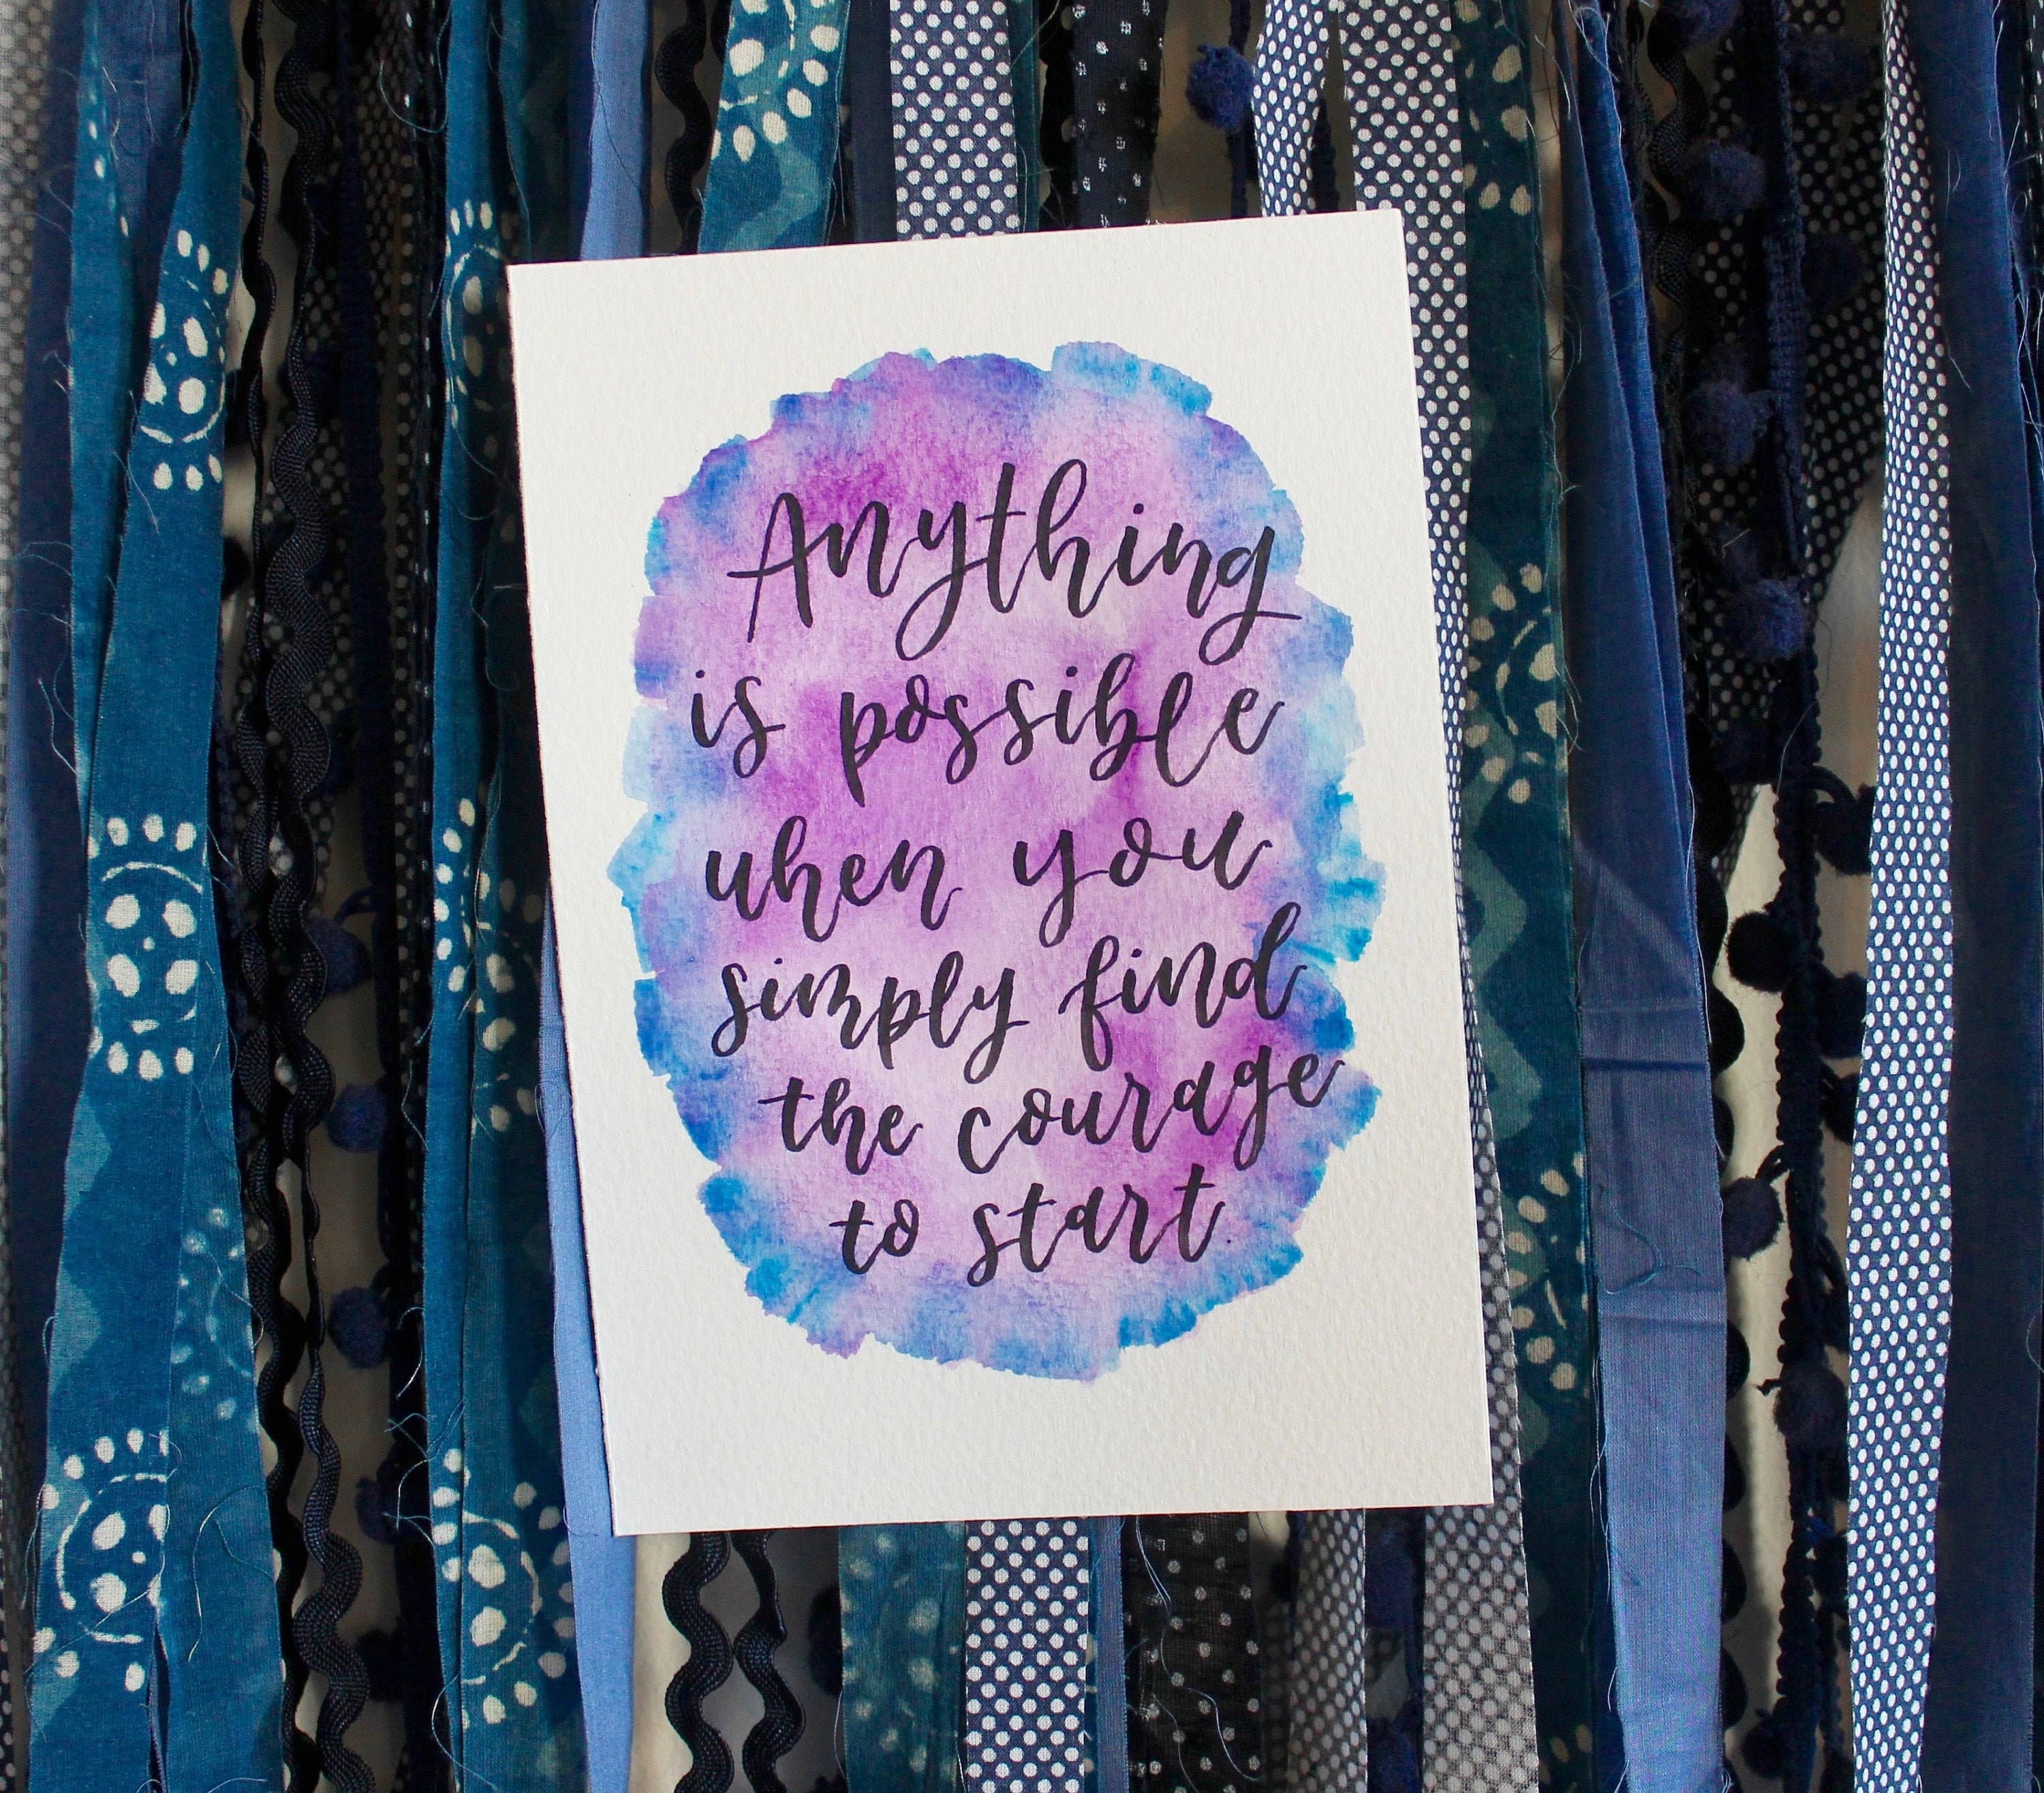 Anything
is possible
when you
simply find
the courage
to start.